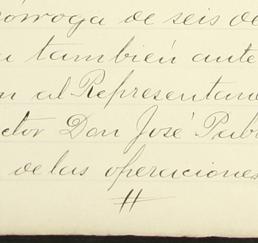 prórroga de seis de
también ante
al Representan
ctor Don José Pab
de las operaciones
#